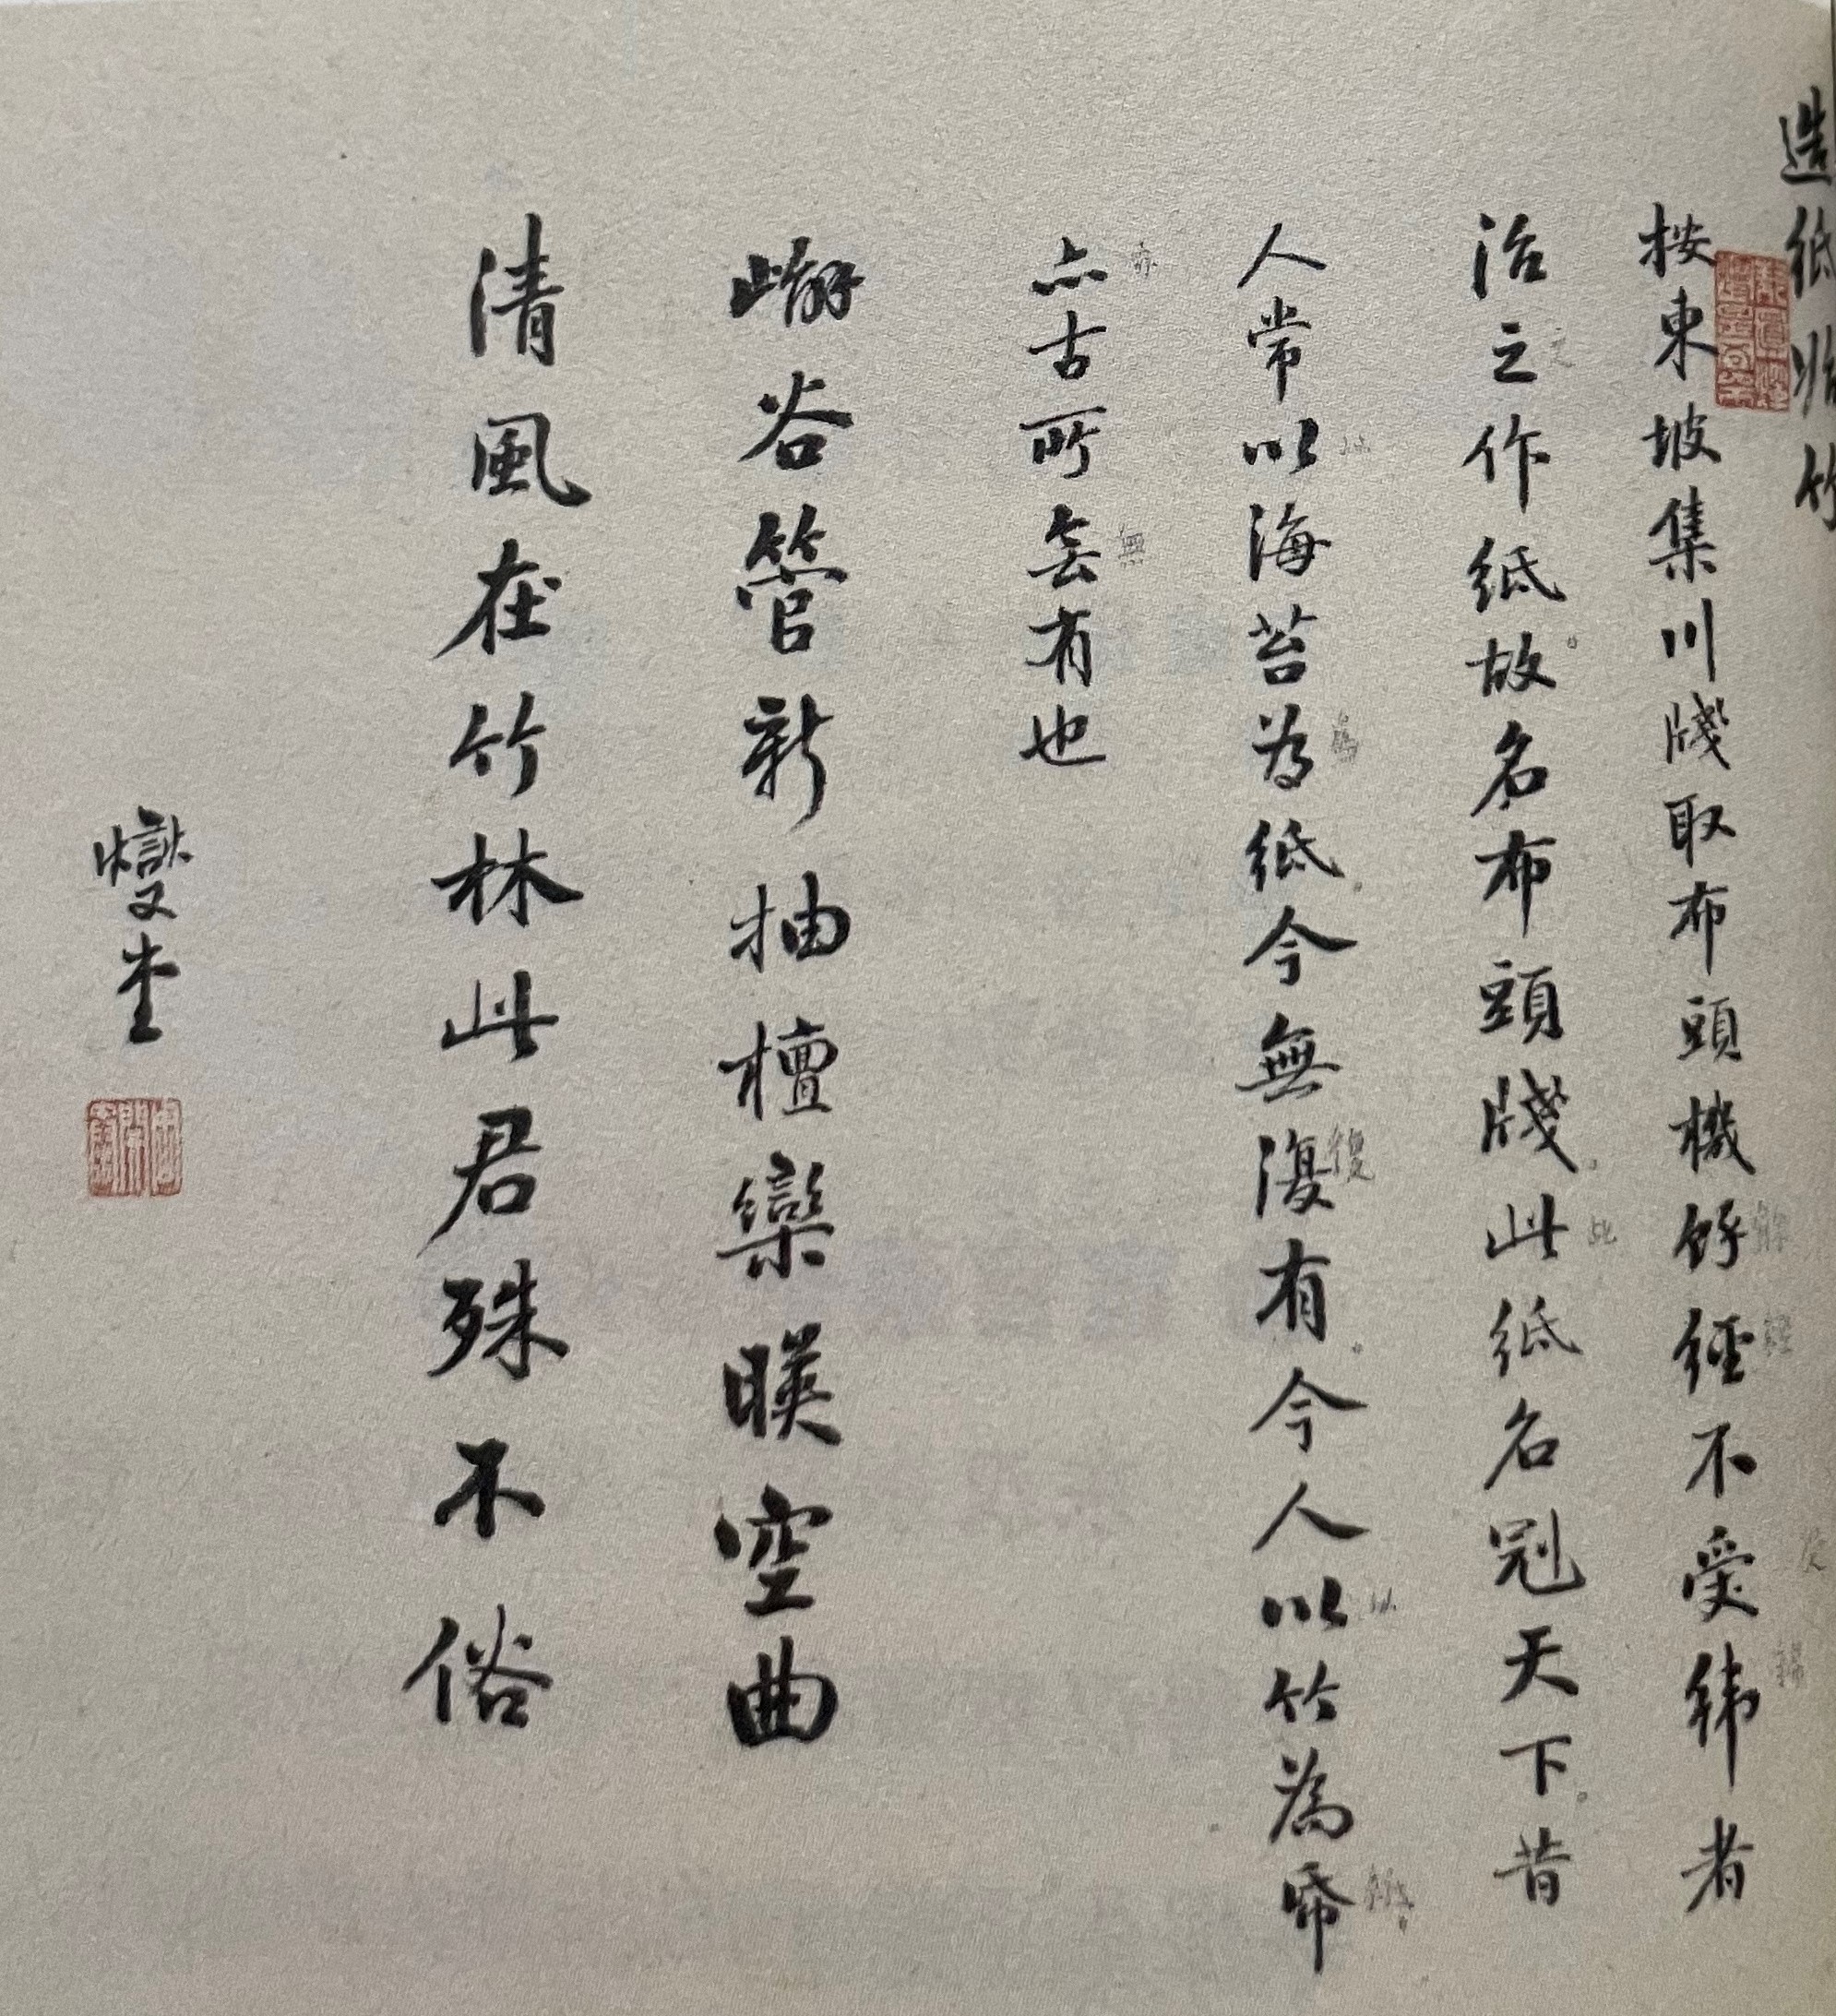 造紙
竹
按東坡集川牋取布頭機餘經不受緯者
治之作紙故名布頭牋此紙名冠天下昔
人常以海苔為紙今無復有今人以竹為帋
亦古所無有也
嶰谷管新抽檀欒暎空曲
清風在竹林此君殊不俗
燮堂